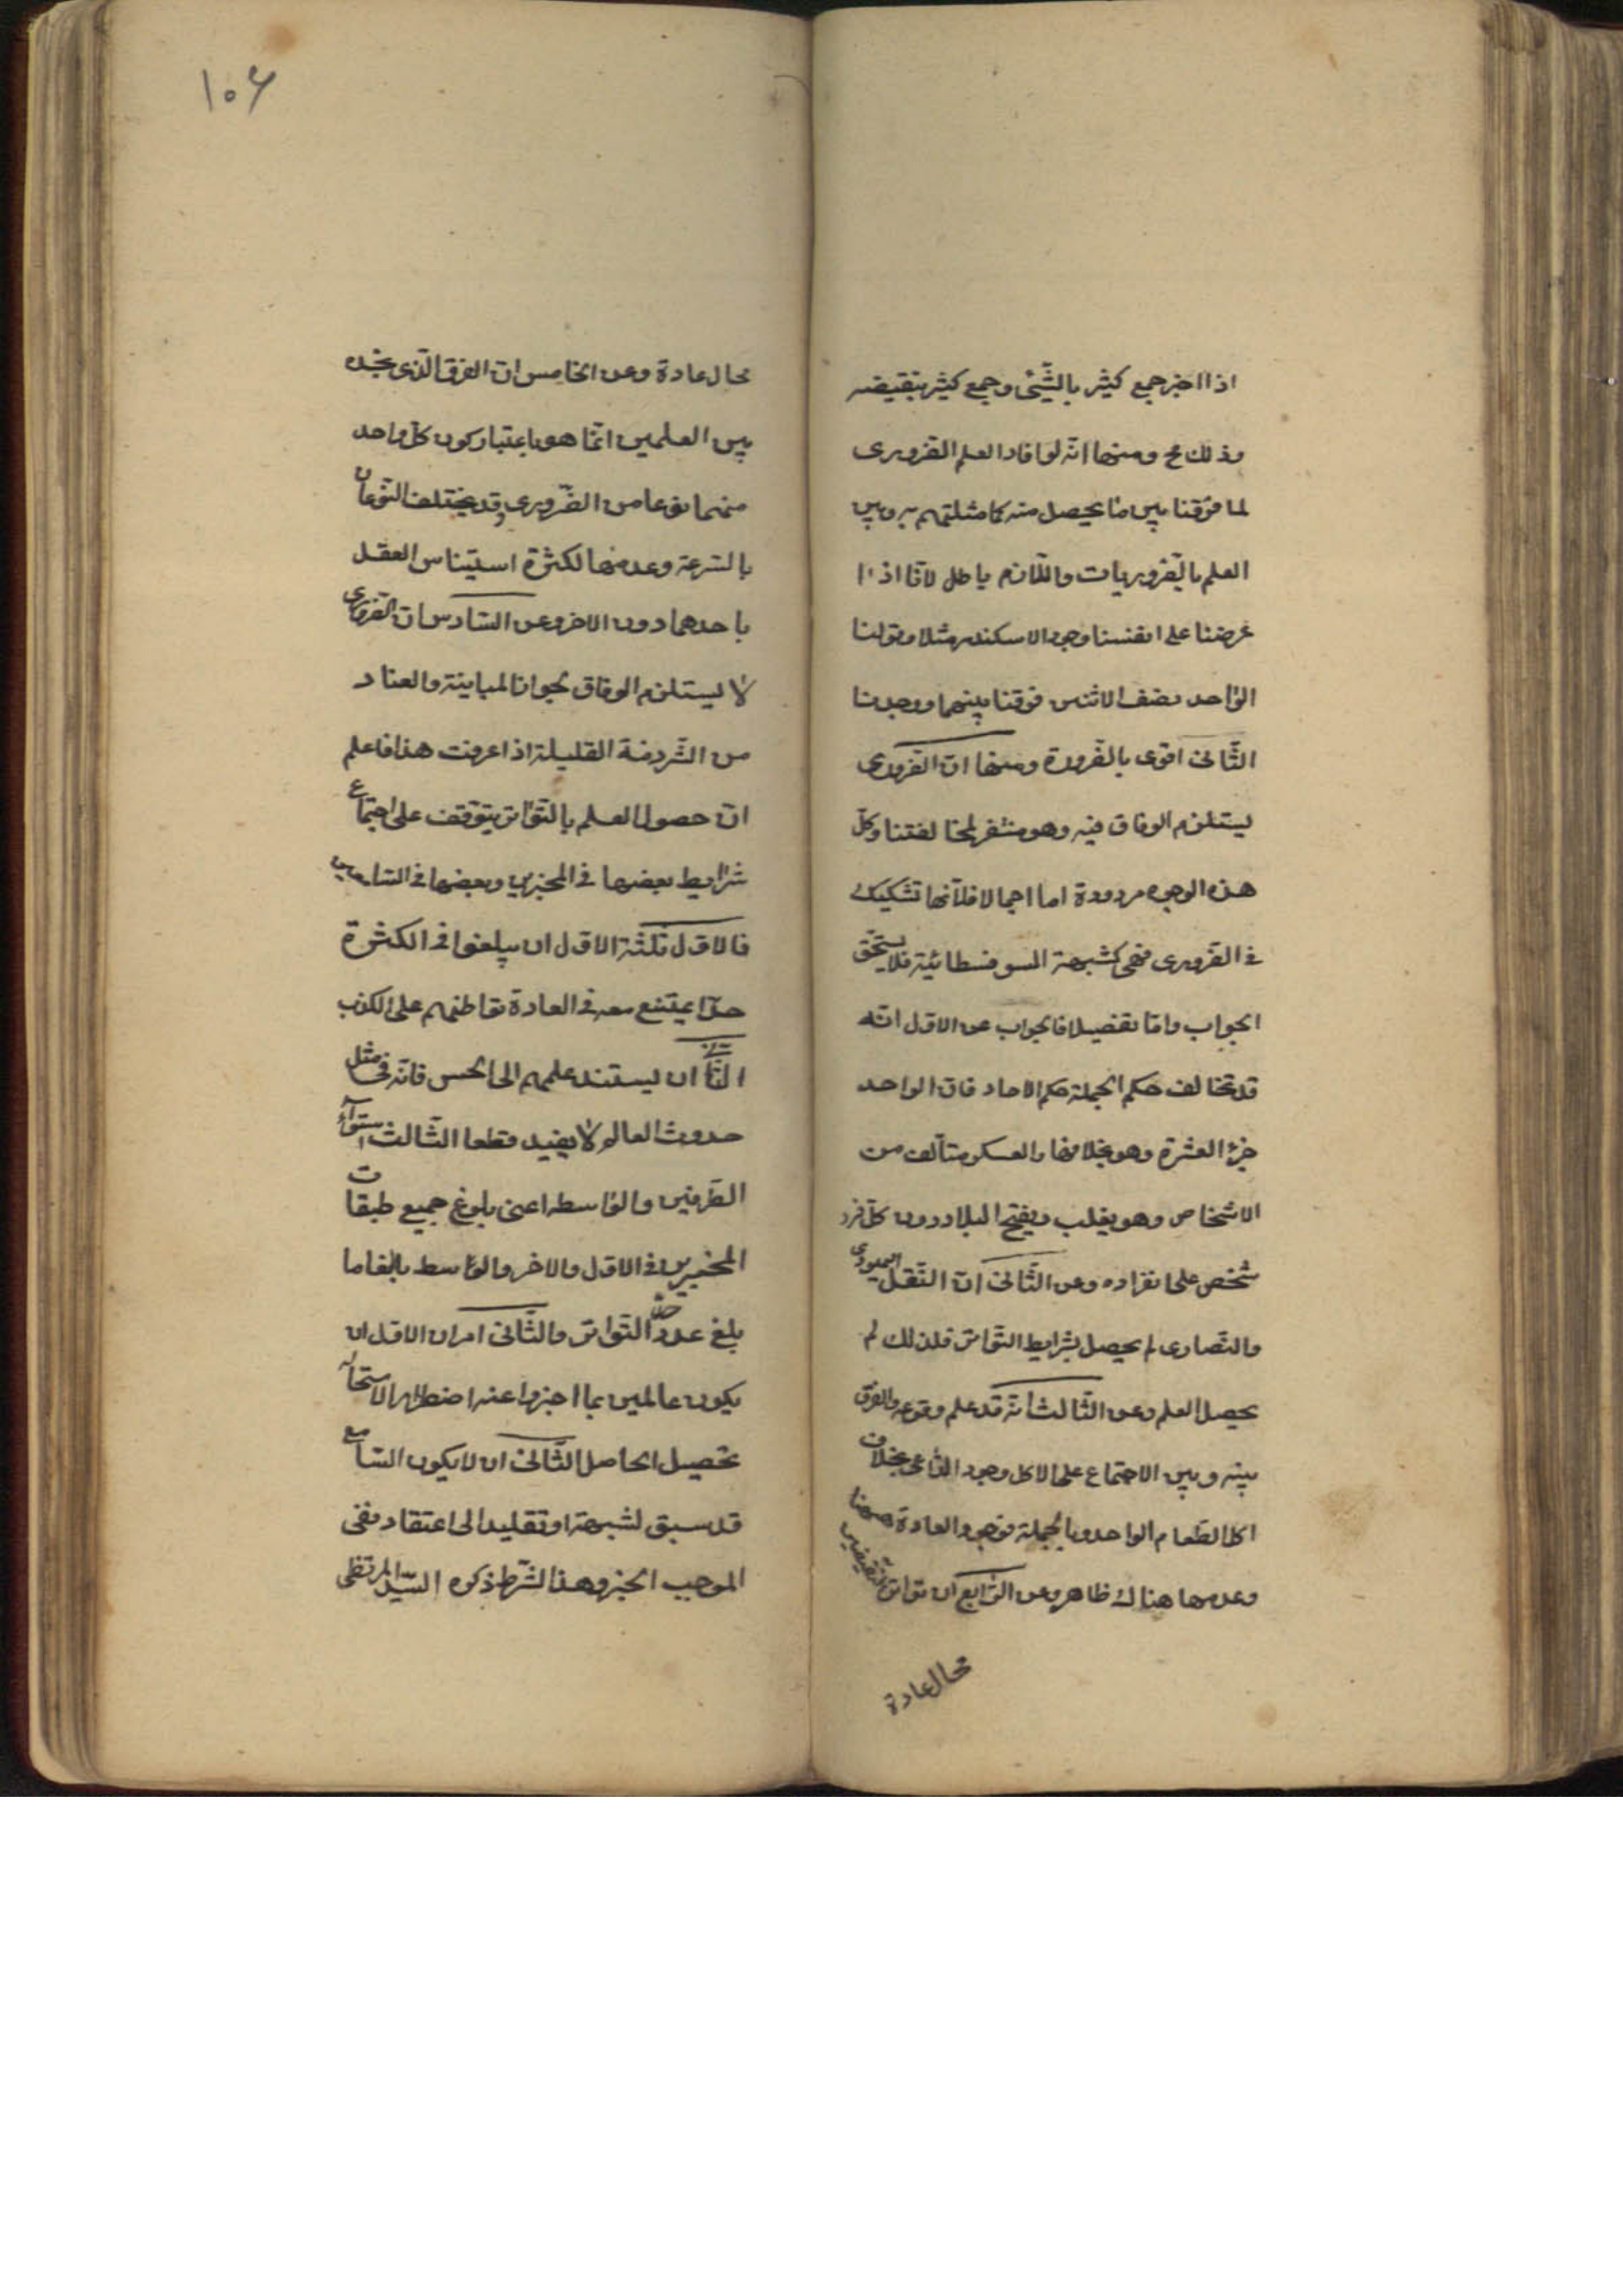 اذا اخبر جمع كثير بالشّيئ وجمع كثير بنقيضه
وذلك مح ومنها انّه لو افاد العلم الضّرورى
لما فرّقنا بين ما يحصل منه كما مثلتم به وبين
العلم بالضّروريات واللّازم باطل لانّا اذا
عرضنا على انفسنا وجود الاسكندر مثلا وقولنا
الواحد نصف الاثنين فرقنا بينهما ووجدنا
الثّانى اقوى بالضّرورة ومنها انّ الضّرورى
يستلزم الوفاق فيه وهو منتف لمخالفتنا وكلّ
هذه الوجوه مردودة اما اجمالا فلانّها تشكيك
فى الضّرورى فهى كشبهة السوفسطائية فلا يستحّق
الجواب وامّا تفصيلا فالجواب عن الاوّل انّه
قد تخالف حكم الجملة حكم الاحاد فانّ الواحد
جزء العشرة وهو بخلافها والعسكر متألّف من
الاشخاص وهو يغلب ويفتح البلاد دون كلّ فرد
شخص على انفراده وعن الثّانى انّ النّقل اليهودى
والنّصارى لم يحصل بشرايط التّواتر فلذلك لم
يحصل العلم وعن الثّالث انّه قد علم وقوعه والفرق
بينه وبين الاجتماع على الاكل وجود الدّاعى بخلاف
اكل الطّعام الواحد وبالجملة فوجود العادة ههنا
وعدمها هناك ظاهر وعن الرّابع ان تواتر النّقيضين
محال عادة
١٠۶
محال عادة وعن الخامس انّ الفرق الّذى نجده
بين العلمين انّما هو باعتبار كون كلّ واحد
منهما نوعا من الضّرورى وقد يختلف النّوعان
بالسّرعة وعدمها لكثرة استيناس العقل
باحدهما دون الاخر وعن السّادس انّ الضّرورى
لا يستلزم الوفاق لجواز المباينة والعناد
من الشّرذمة القليلة اذا عرفت هذا فاعلم
انّ حصول العلم بالتّواتر يتوّقف على اجتماع
شرايط بعضها فى المخبرين وبعضها فى السّامعين
فالاوّل ثلثة الاوّل ان يبلغوا فى الكثرة
حدّا يمتنع معه فى العادة تواطئهم على الكذب
الثّانى ان يستند علمهم الى الحسّ فانّه فى مثل
حدوث العالم لا يفيد قطعا الثّالث استواء
الطّرفين والواسطه اعنى بلوغ جميع طبقات
المخبرين فى الاوّل والاخر والواسط بالغا ما
بلغ عدد حدّ التّواتر والثّانى امران الاوّل ان
يكون عالمين بما اخبروا عنه اضطرار الاستحاله
تحصيل الحاصل الثّانى ان لا يكون السّامع
قد سبق لشبهة او تقليد الى اعتقاد نفى
الموجب الخبر وهذا الشّرط ذكره السّيّد المرتضى